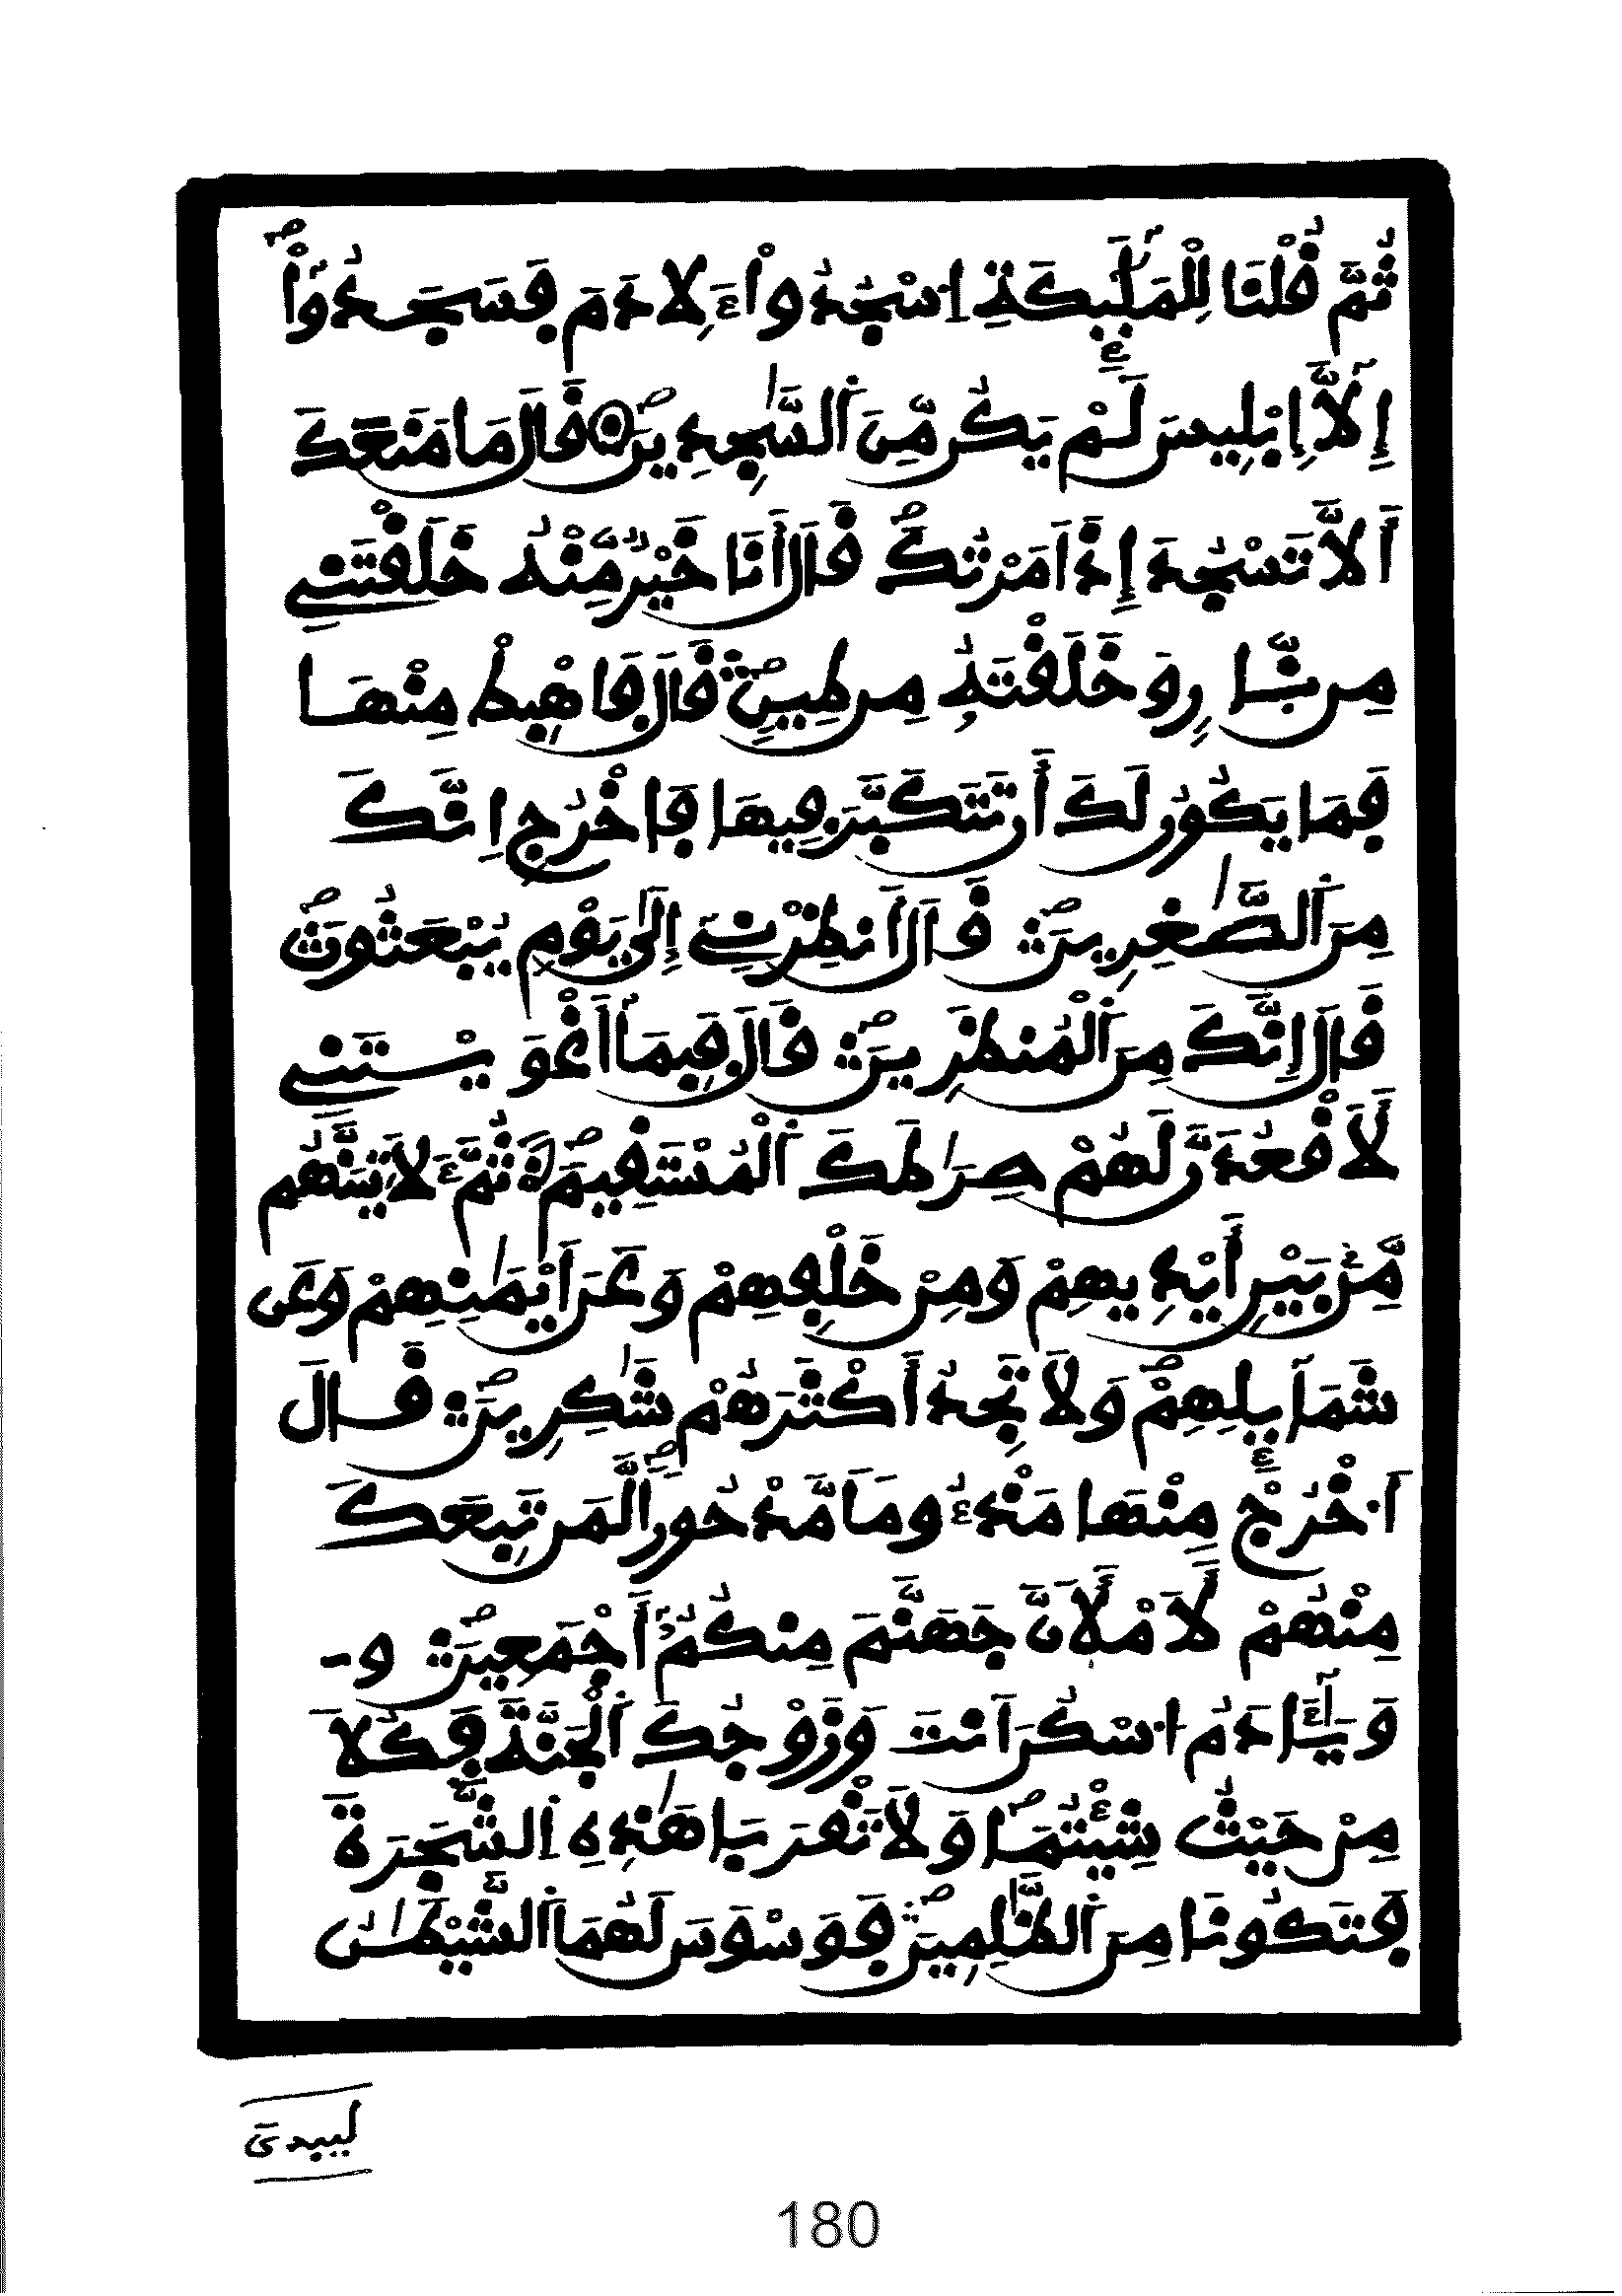 ثُمَّ قُلْنَا لِلْمَلَٰٓئِكَةِ اِ۟سْجُدُواْ ءَلِادَمَ فَسَجَدُوٓاْ
إِلَّآ إِبْلِيسَ لَمْ يَكُن مِّنَ اَ۬لسَّٰجِدِينَ قَالَ مَا مَنَعَكَ
أَلاَّ تَسْجُدَ إِذَ اَمَرْتُكَ قَالَ أَنَا خَيْرٌ مِّنْهُ خَلَقْتَنِے
مِن نّ۪ارٖ وَخَلَقْتَهُۥ مِن طِينٖ قَالَ فَاهْبِطْ مِنْهَا
فَمَا يَكُونُ لَكَ أَن تَتَكَبَّرَ فِيهَا فَاخْرُجِ اِنَّكَ
مِنَ اَ۬لصَّٰغِرِينَ قَالَ أَنظِرْنِےٓ إِلَىٰ يَوْمِ يُبْعَثُونَ
قَالَ إِنَّكَ مِنَ اَ۬لْمُنظَرِينَ قَالَ فَبِمَآ أَغْوَيْتَنِے
لَأَقْعُدَنَّ لَهُمْ صِرَٰطَكَ اَ۬لْمُسْتَقِيمَ ثُمَّ ءَلَاتِيَنَّهُم
مِّنۢ بَيْنِ أَيْدِيهِمْ وَمِنْ خَلْفِهِمْ وَعَنَ اَيْمَٰنِهِمْ وَعَن
شَمَآئِلِهِمْ وَلَا تَجِدُ أَكْثَرَهُمْ شَٰكِرِينَ قَالَ
اَ۟خْرُجْ مِنْهَا مَذْءُوماً مَّدْحُوراً لَّمَن تَبِعَكَ
مِنْهُمْ لَأَمْلَأَنَّ جَهَنَّمَ مِنكُمُۥٓ أَجْمَعِينَ و-
وَيَٰٓـَٔادَمُ اُ۟سْكُنَ اَنتَ وَزَوْجُكَ اَ۬لْجَنَّةَ فَكُلَا
مِنْ حَيْثُ شِئْتُمَا وَلَا تَقْرَبَا هَٰذِهِ اِ۬لشَّجَرَةَ
فَتَكُونَا مِنَ اَ۬لظَّٰلِمِينَ فَوَسْوَسَ لَهُمَا اَ۬لشَّيْطَٰنُ
ليبدى
180